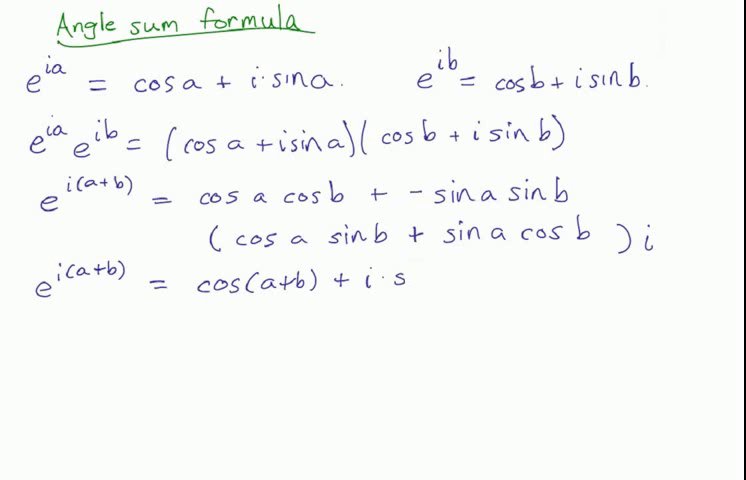 Angle sum formula
e^{ia} = cos a + i·sin a. e^{ib} = cos b + i sin b.
e^{ia} e^{ib} = (cos a + i sin a)(cos b + i sin b)
e^{i(a+b)} = cos a cos b + - sin a sin b
(cos a sin b + sin a cos b) i
e^{i(a+b)} = cos(a+b) + i·s